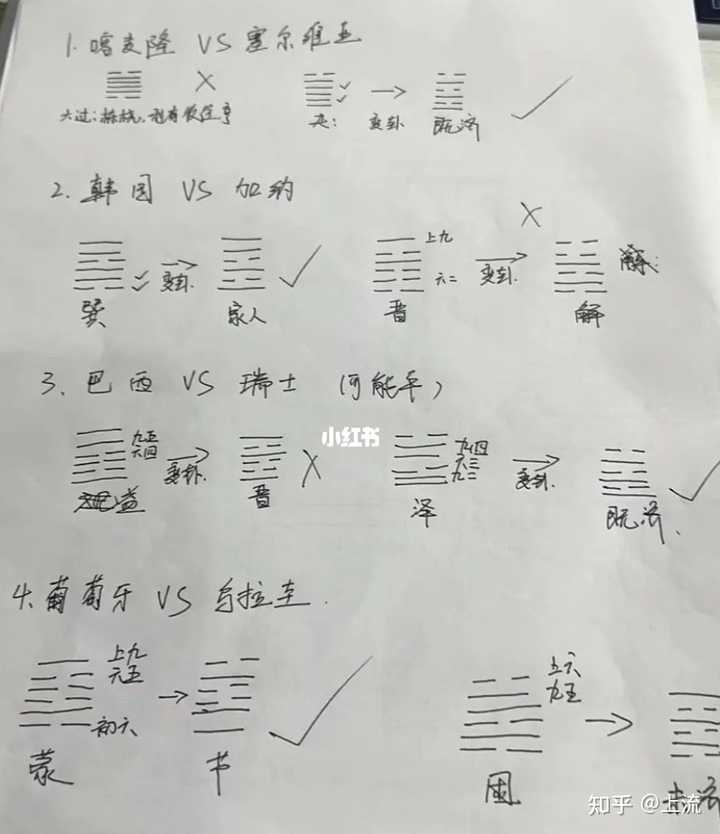 1. 喀麦隆 VS 塞尔维亚
大过: 栋桡,利有攸往亨
夬: 变卦 既济
2. 韩国 VS 加纳
上九
六二
变卦. 变卦.
解:
巽 家人 晋 解
3. 巴西 VS 瑞士 (可能平)
小红书
九五
六四
变卦.
九四
六三
九二
变卦.
益 晋 泽 既济.
4. 葡萄牙 VS 乌拉圭.
上九
六五
初六
五六
九五
蒙 节 困 未济
知乎 @上流